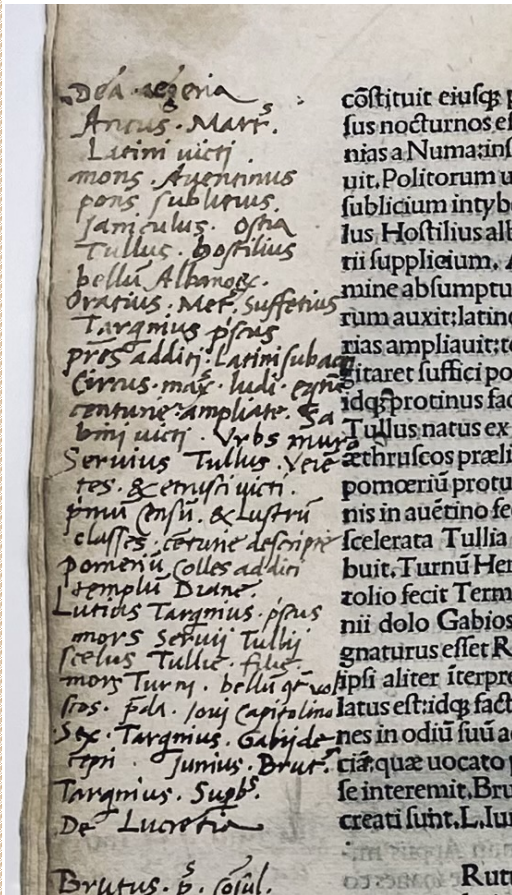 Dea aegeria
Ancus . Mart⁹.
Latini uicti .
mons . Auentinus
pons sublicius.
Janiculus . Ostia
Tullus . hostilius
bellũ Albanoꝝ.
Oratius . Met⁹. Suffetius
Tarqnius pʼscus
additi . Latini subacti
Circus . max⁹ . ludi .
centurie ampliate . Sa
bini uicti . Vrbs muro
Seruius Tullus . Veiẽ
tes . & etrusci uicti .
pʼmũ Censũ . & Lustrũ
classes . cẽturie descripte
pomeriũ Colles additi
templũ Diane .
Lutius Tarqnius . pʼscus
mors Seruij Tullij
scelus Tullie . filie .
mors Turni . bellũ vol
scos . Ioui Capitolino
Sex . Tarqnius . Gabij de
cepti . Junius . Brut⁹.
Tarqnius . Supb⁹.
De Lucretia
Brutus . p⁹. cõsul.
cõstituit eiusq; p
sus nocturnos es
nias a Numa:inst
uit.Politorum u
sublicium intyb
lus Hostilius alb
tii supplicium. A
mine absumptu
rum auxit:latino
rias ampliauit:to
gitaret suffici po
idq; protinus fac
Tullus natus ex
æthruscos præli
pomœriũ protu
nis in auẽtino fe
scelerata Tullia
buit.Turnũ Her
tolio fecit Term
nii dolo Gabios
gnaturus esset R
ipsi aliter ĩterpre
latus est:idq; fact
nes in odiũ suũ a
ciã:quæ uocato p
se interemit.Bru
creati sunt.L.Iun
Rutu